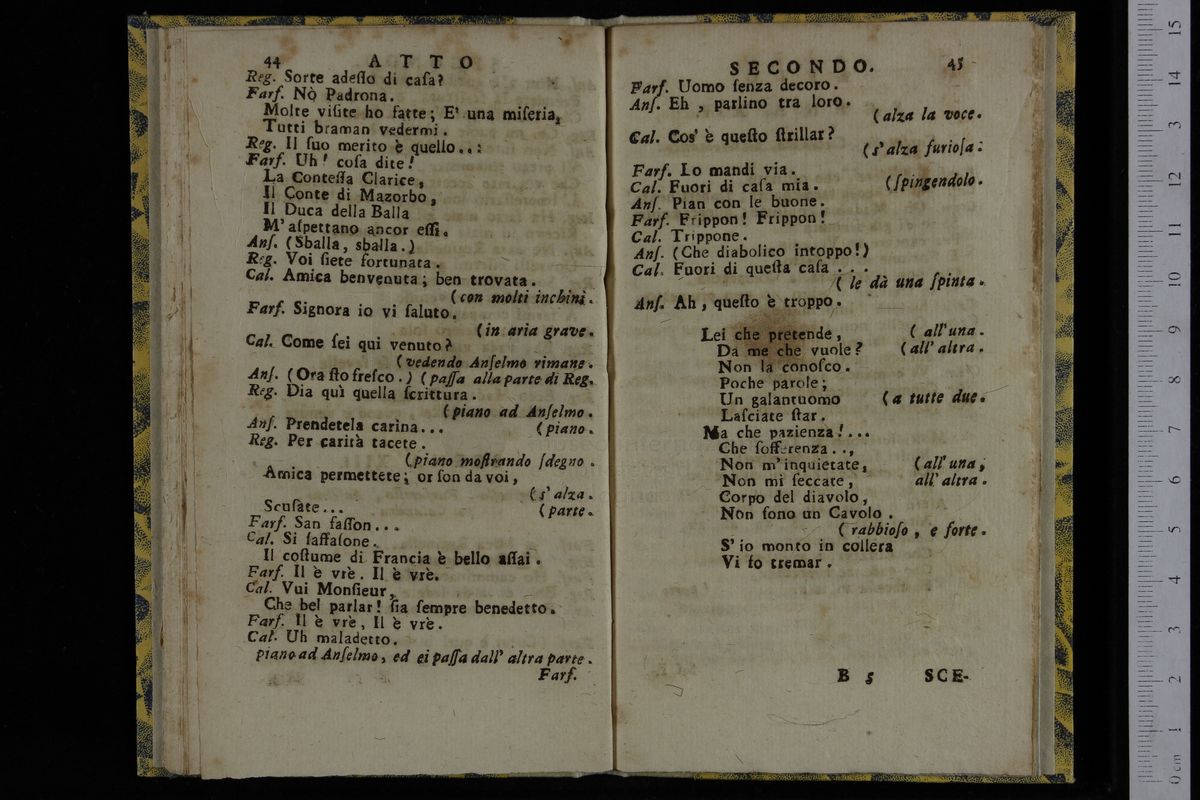 44 ATTO
Reg. Sorte adeſſo di caſa?
Farf. Nò Padrona.
Molte viſite ho fatte; E' una miſeria,
Tutti braman vedermi.
Reg. Il ſuo merito è quello..:
Farf. Uh! coſa dite!
La Conteſſa Clarice,
Il Conte di Mazorbo,
Il Duca della Balla
M'aſpettano ancor eſſi.
Anſ. (Sballa, sballa.)
Reg. Voi ſiete fortunata.
Cal. Amica benvenuta; ben trovata.
(con molti inchini.
Farf. Signora io vi ſaluto.
(in aria grave.
Cal. Come ſei qui venuto?
(vedendo Anſelmo rimane.
Anſ. (Ora ſto freſco.) (paſſa alla parte di Reg.
Reg. Dia quì quella ſcrittura.
(piano ad Anſelmo.
Anſ. Prendetela carina... (piano.
Reg. Per carità tacete.
(piano moſtrando ſdegno.
Amica permettete; or ſon da voi,
(s'alza.
Scuſate... (parte.
Farf. San faſſon...
Cal. Si ſaffaſone.
Il coſtume di Francia è bello aſſai.
Farf. Il è vrè. Il è vrè.
Cal. Vui Monſieur,
Che bel parlar! ſia ſempre benedetto.
Farf. Il è vrè, Il è vrè.
Cal. Uh maladetto.
piano ad Anſelmo, ed ei paſſa dall' altra parte.
Farf.
SECONDO. 45
Farf. Uomo ſenza decoro.
Anſ. Eh, parlino tra loro.
(alza la voce.
Cal. Cos' è queſto ſtrillar?
(s'alza furioſa:
Farf. Lo mandi via.
Cal. Fuori di caſa mia. (ſpingendolo.
Anſ. Pian con le buone.
Farf. Frippon! Frippon!
Cal. Trippone.
Anſ. (Che diabolico intoppo!)
Cal. Fuori di queſta caſa...
(le dà una ſpinta.
Anſ. Ah, queſto è troppo.
Lei che pretende, (all'una.
Da me che vuole? (all' altra.
Non la conoſco.
Poche parole;
Un galantuomo (a tutte due.
Laſciate ſtar.
Ma che pazienza!...
Che ſofferenza..,
Non m'inquietate, (all' una,
Non mi ſeccate, all' altra.
Corpo del diavolo,
Non ſono un Cavolo.
(rabbioſo, e forte.
S'io monto in collera
Vi fo tremar.
B 5 SCE-
0 cm 1 2 3 4 5 6 7 8 9 10 11 12 13 14 15